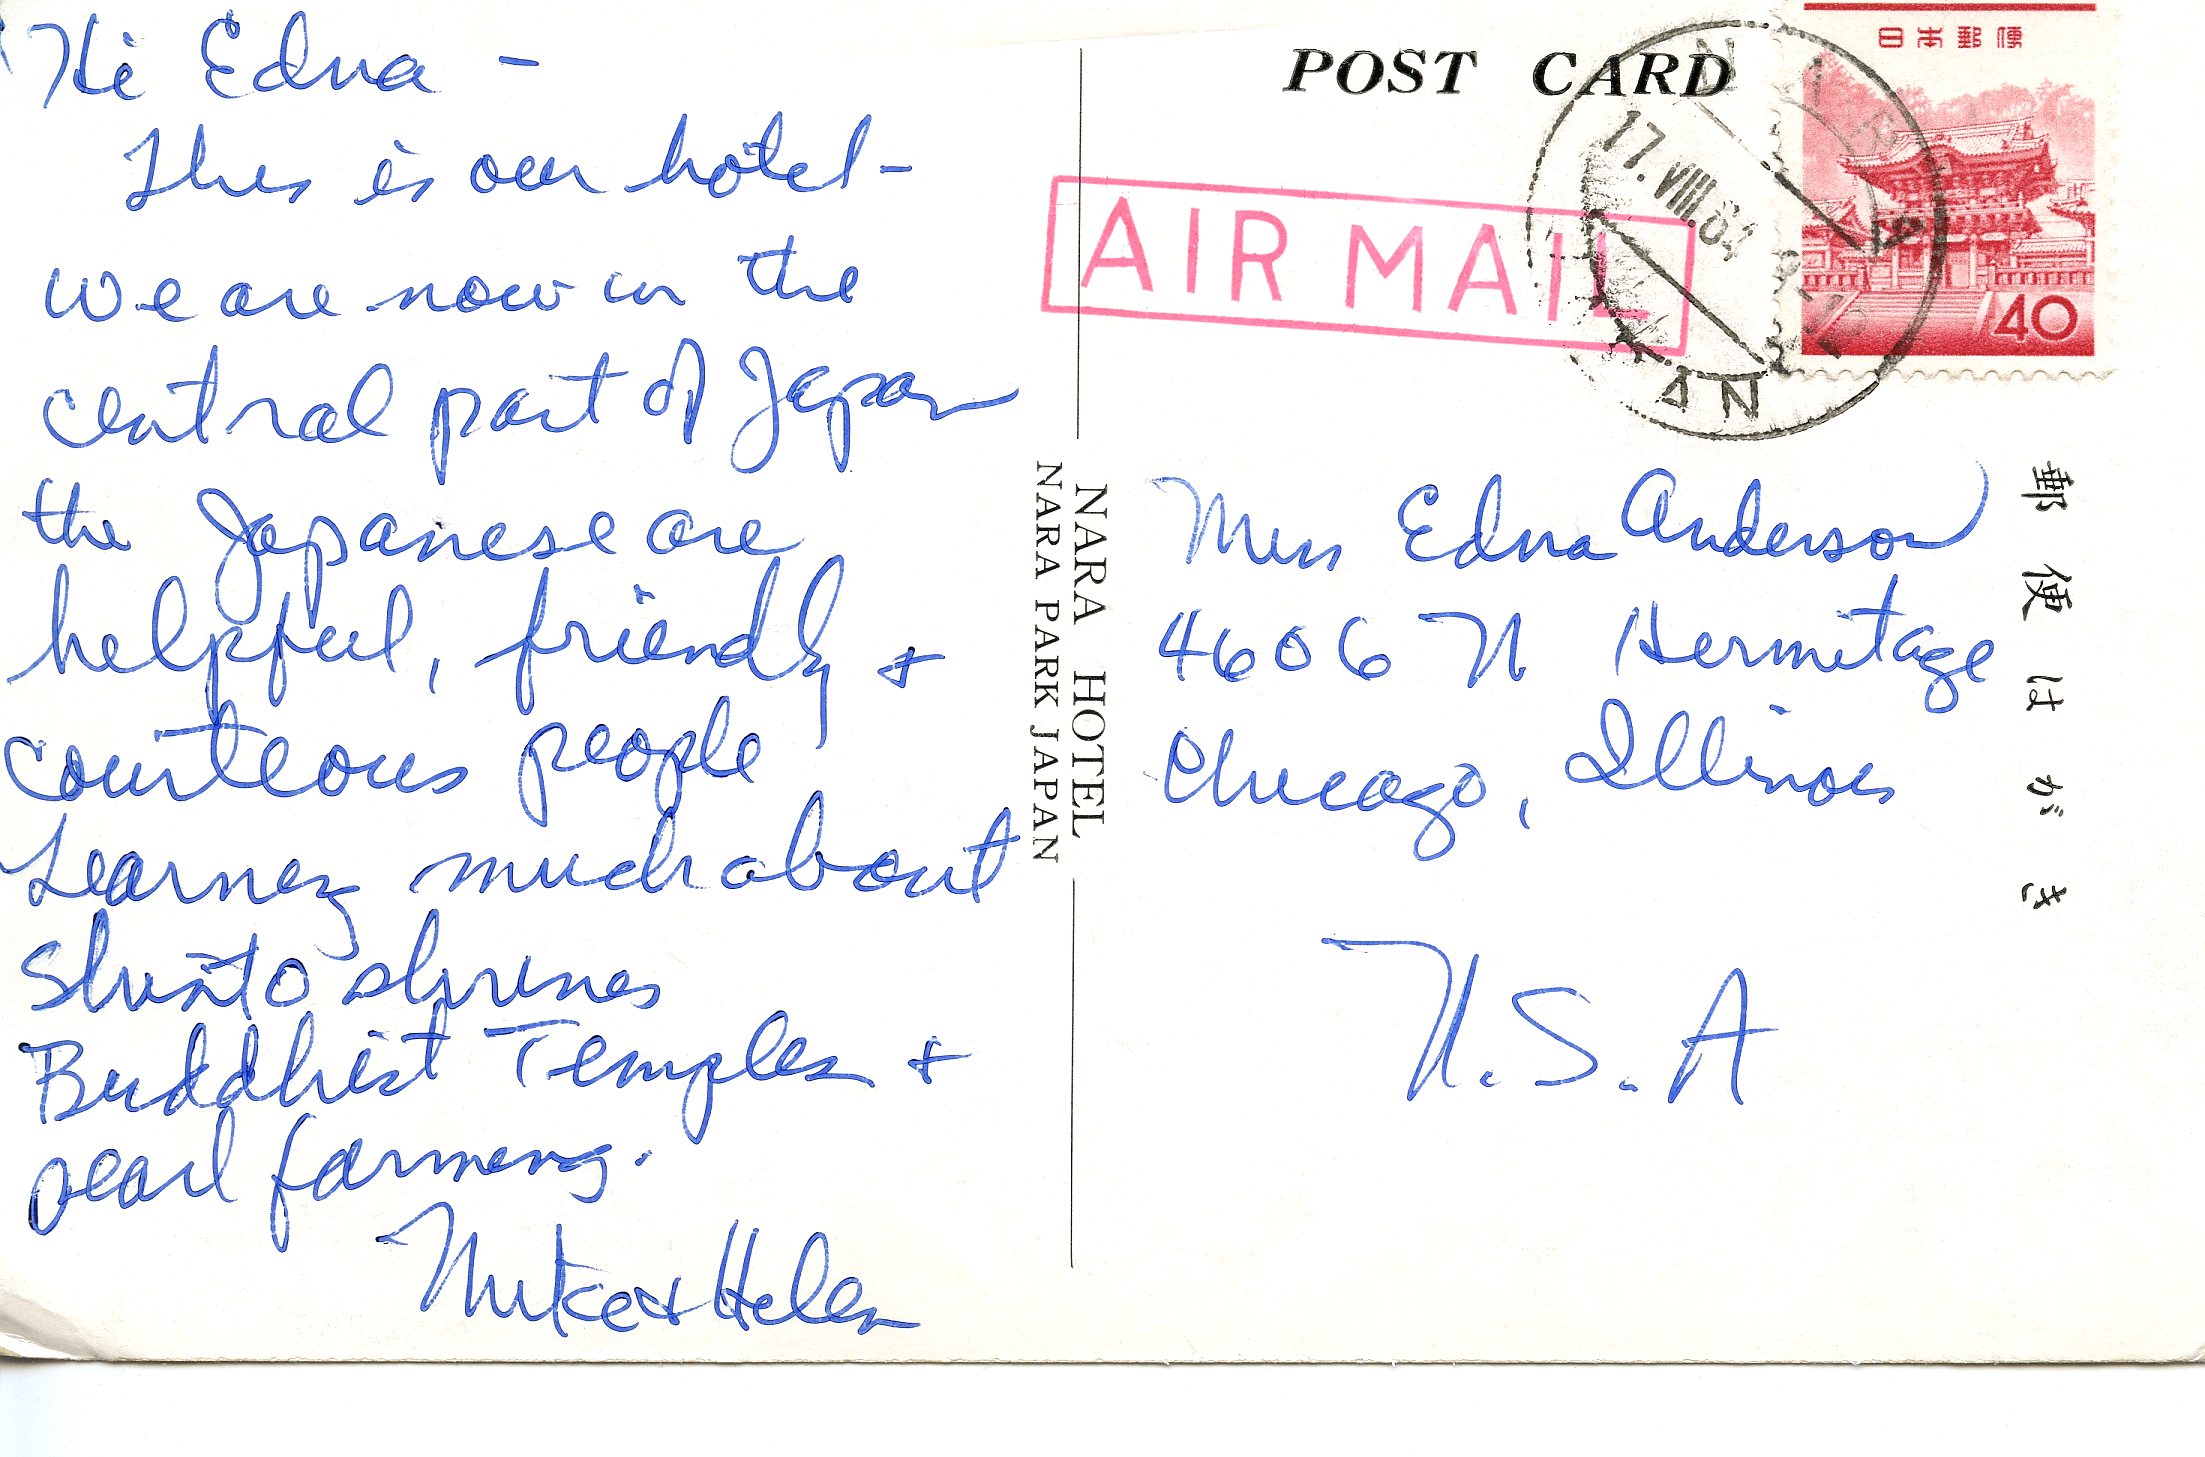 Hi Edna -
This is our hotel -
we are now in the
central part of Japan
the Japanese are
helpful, friendly +
courteous people
Learning much about
Shinto shrines
Buddhist Temples +
pearl farming.
Mike + Helen
POST CARD
AIR MAIL
NARA
17.VIII.64
JAPAN
日本郵便
40
NARA HOTEL
NARA PARK JAPAN
Miss Edna Anderson
4606 N Hermitage
Chicago, Illinois
U.S.A
郵便はがき